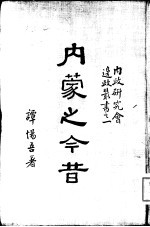 內政研究會
邊政叢書之一
內蒙之今昔
譚惕吾著